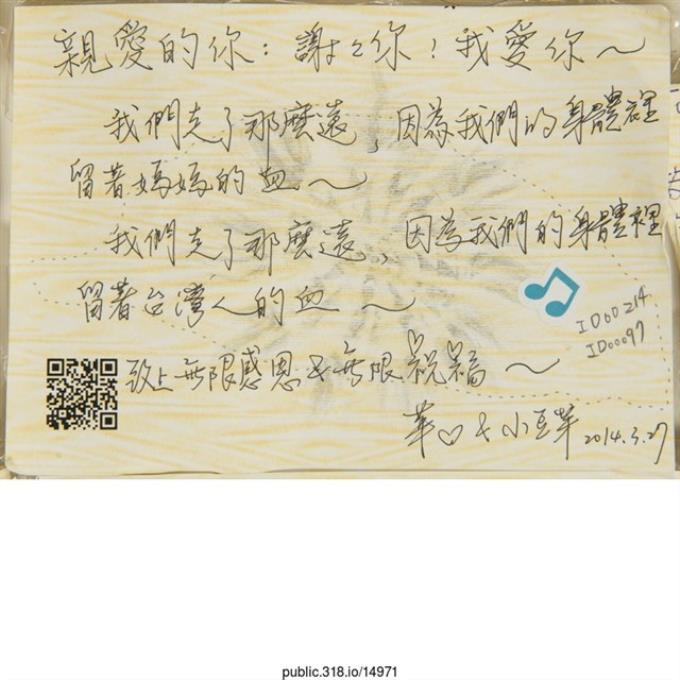 親愛的你：謝々你！我愛你～
我們走了那麼遠，因為我們的身體裡
留著媽媽的血～
我們走了那麼遠，因為我們的身體裡
留著台灣人的血～
ID00214
ID00097
致上無限感恩&無限祝福～
苹♡&小豆苹 2014.3.27
public.318.io/14971